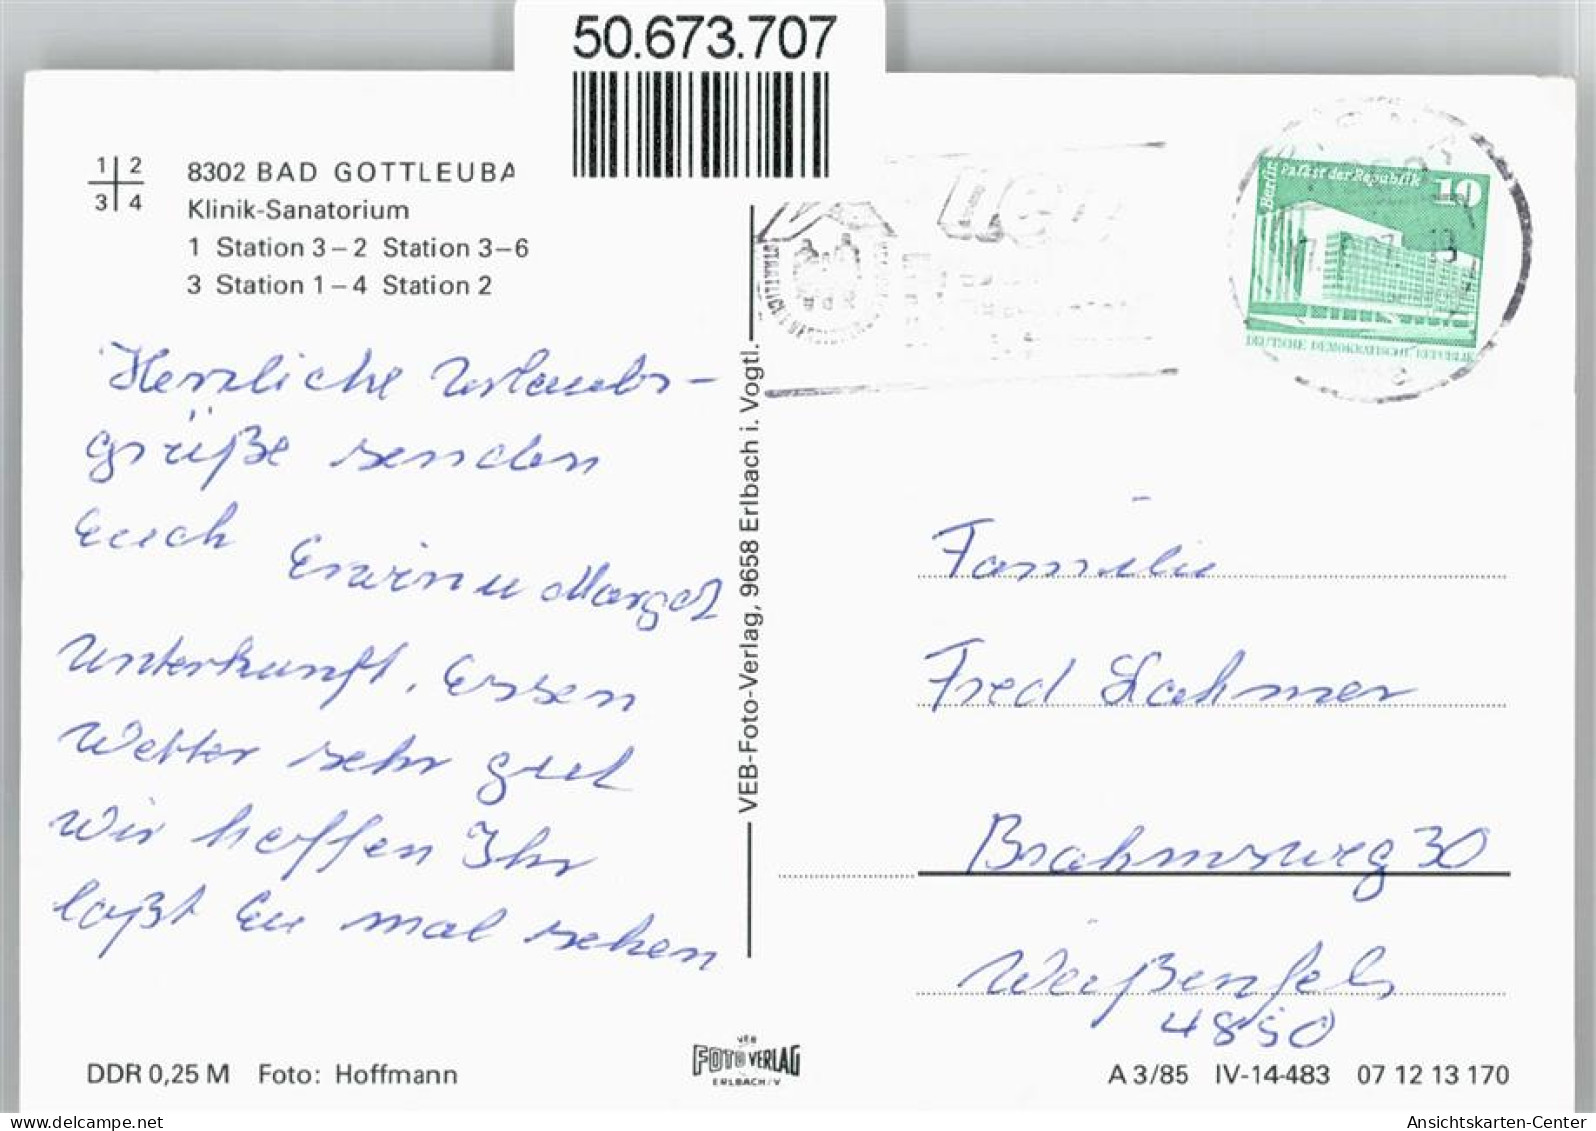 50.673.707
1 2
3 4
8302 BAD GOTTLEUBA
Klinik-Sanatorium
1 Station 3–2 Station 3–6
3 Station 1–4 Station 2
Herzliche Urlaubs-
grüße senden
Euch Erwin u Margot
Unterkunft, Essen
Wetter sehr gut
Wir hoffen Ihr
laßt Eu mal sehen
VEB-Foto-Verlag, 9658 Erlbach i. Vogtl.
Berlin Palast der Republik 10
DEUTSCHE DEMOKRATISCHE REPUBLIK
Familie
Fred Lahmer
Brahmsweg 30
Weißenfels
4850
DDR 0,25 M Foto: Hoffmann
VEB
FOTO VERLAG
ERLBACH/V
A 3/85 IV-14-483 07 12 13 170
oldthing.net
Ansichtskarten-Center